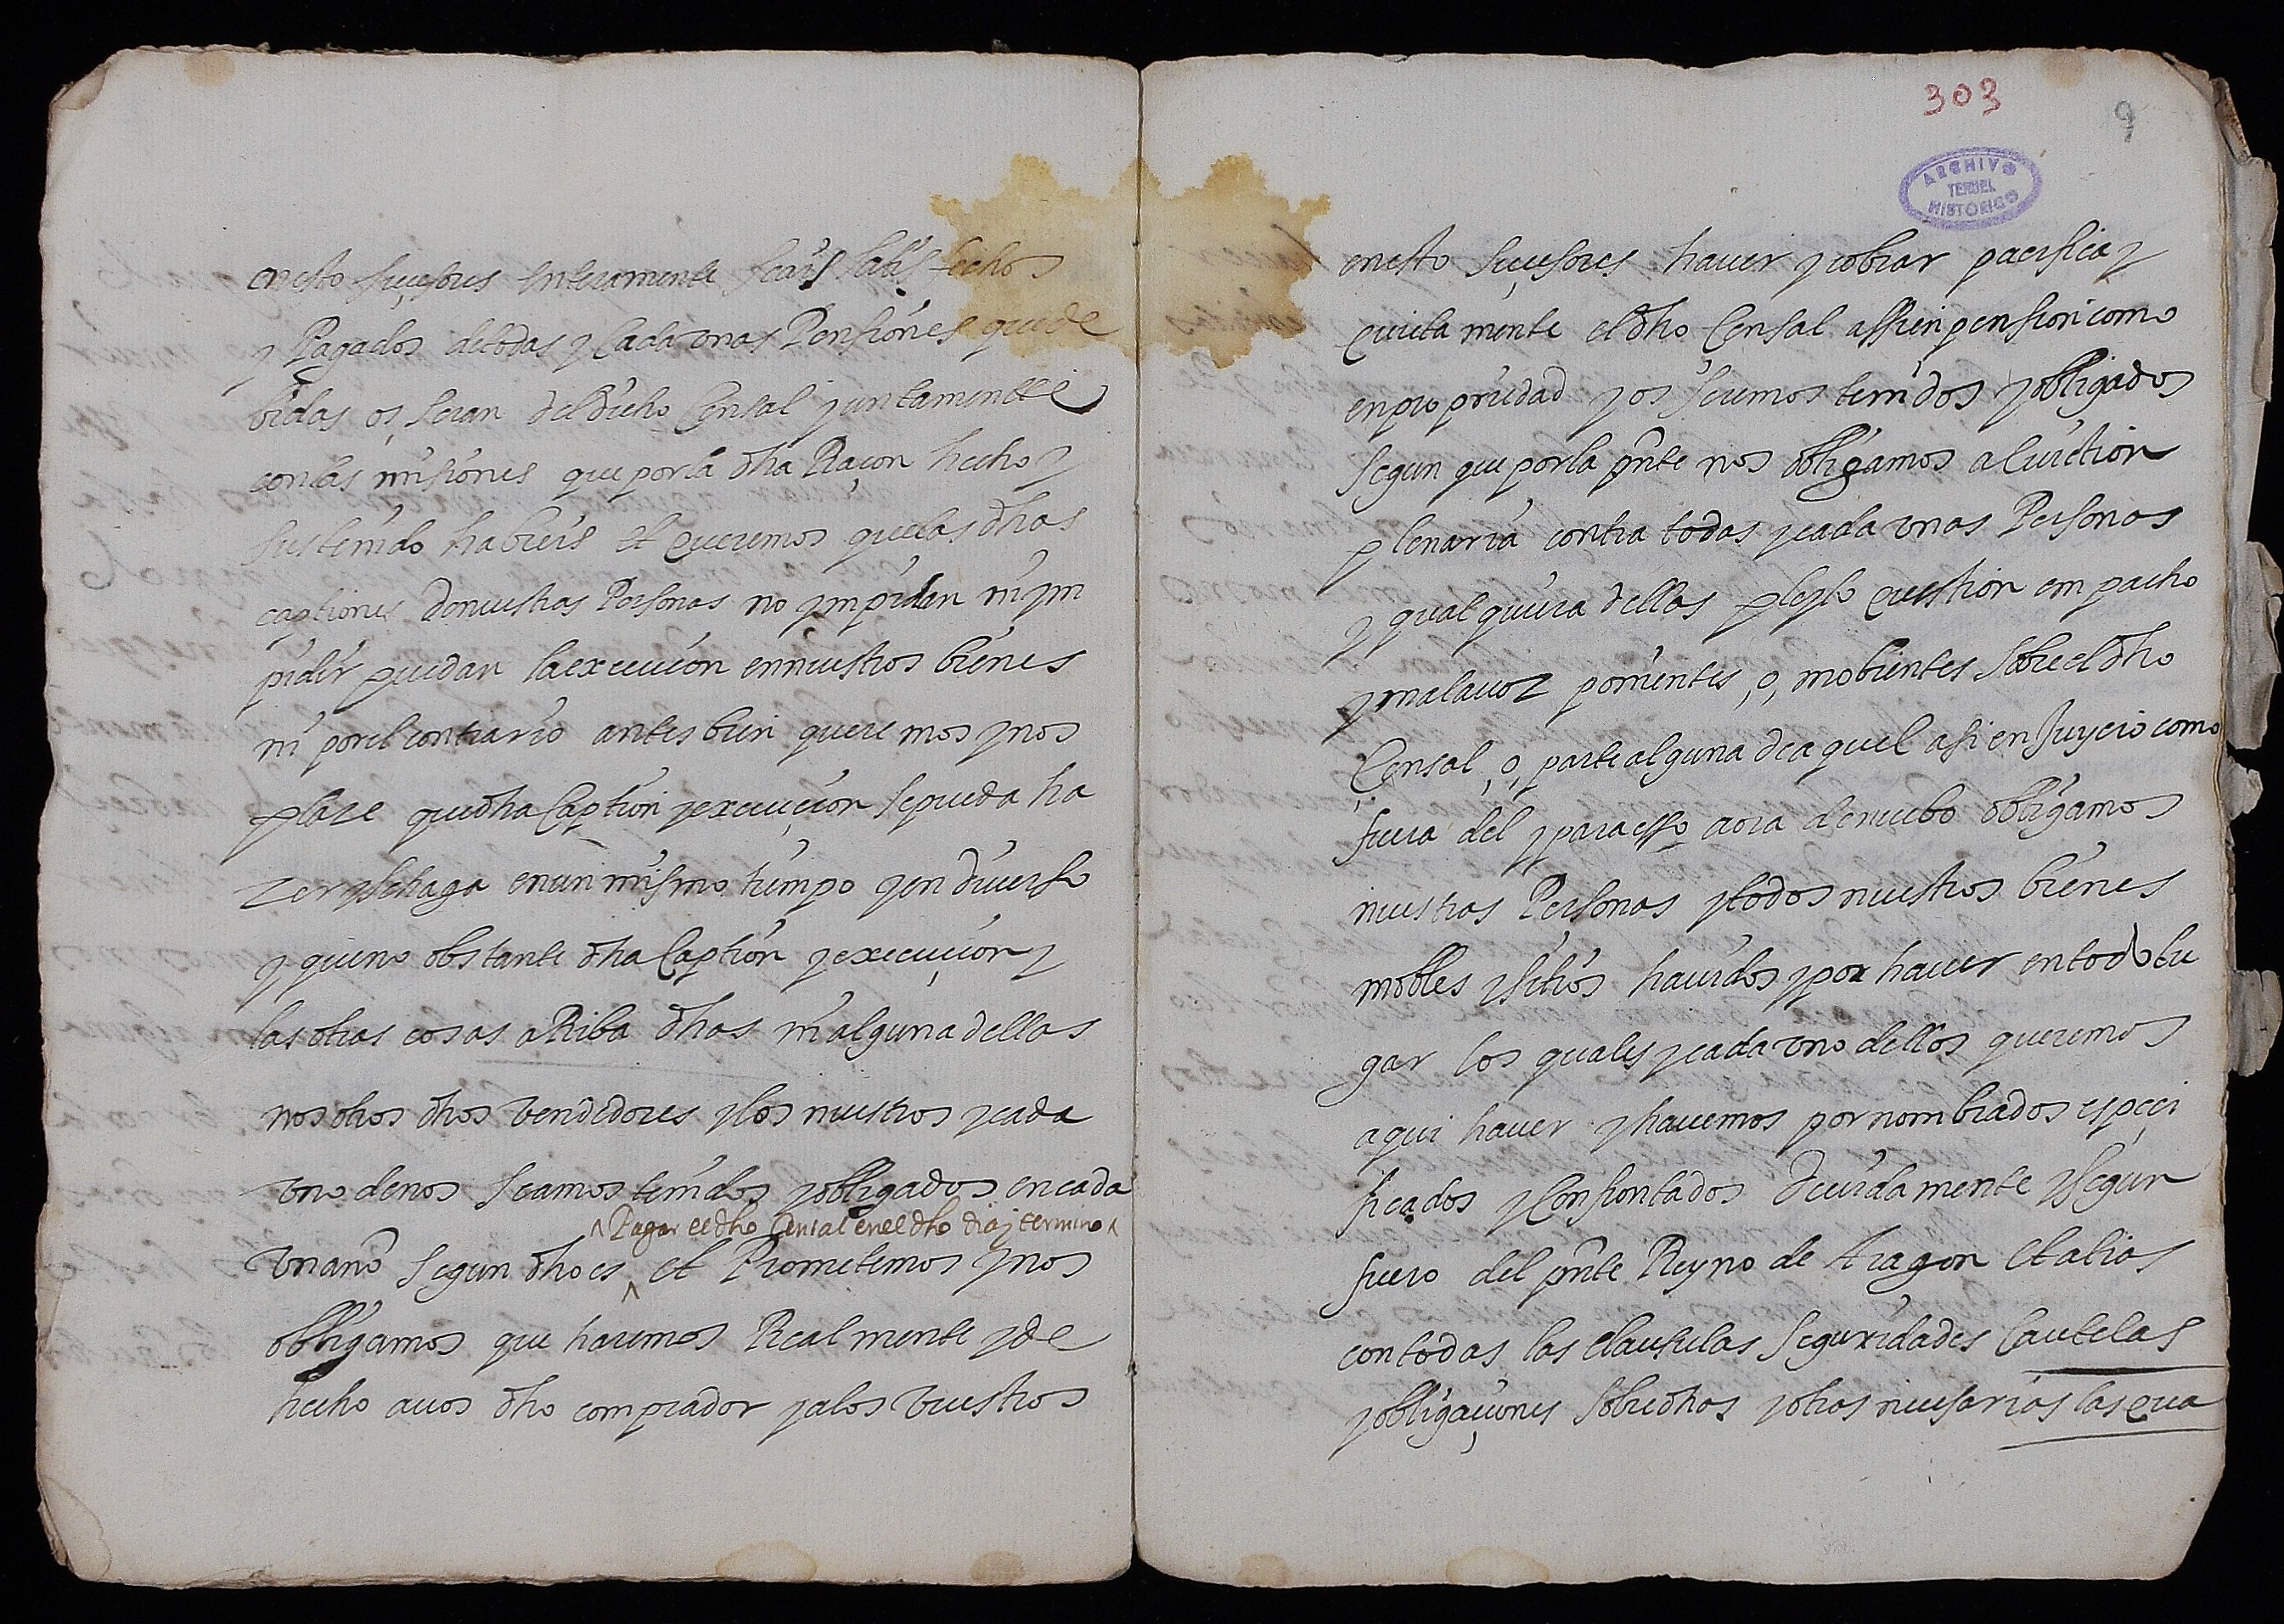 en esto suçesores enteramente seais satisfechos
y Pagados de todas y Cada unas Pensiones que de
bidas os seran del dicho Censal juntamentte
con las misiones que por la dha Raçon hecho y
sustenido habreis et Queremos que las dhas
captiones de nuestras Personas no ympidan ni ym
pidir puedan la execucion en nuestros bienes
ni por el contrario antes bien queremos y nos
plaze que dha Caption y execuçion se pueda ha
zer y se haga en un mismo tiempo y en diuerso
y que no obstante dha Caption y execuçion y
las otras cosas aRiba dhas ni alguna dellas
nos otros dhos vendedores y los nuestros y cada
uno de nos seamos tenidos y obligados en cada
^ Pagar el dho Censal en el dho dia y termino ^
un año segun dho es ^ et Prometemos y nos
obligamos que haremos Realmente y de
hecho a uos dho comprador y a los vuestros
303
9
ARCHIVO
TERUEL
HISTORICO
en esto suçesores hauer y cobrar pacifica y
quieta mente el dho Censal assi en pension como
en propriedad y os seremos tenidos y obligados
segun que por la pnte nos obligamos a euiction
plenaria contra todas y cada unas Personas
y qual quiera dellas pleyto question empacho
y mala uoz ponientes, o, mobientes sobre el dho
Censal, o, parte alguna de aquel asi en Juycio como
fuera del y para esso aora de nuebo obligamos
nuestras Personas y todos nuestros bienes
mobles y sitios hauidos y por hauer en todo lu
gar los quales y cada uno dellos queremos
aqui hauer y hauemos por nombrados espeçi
ficados y Confrontados deuidamente y segun
fuero del pnte Reyno de Aragon et alias
con todas las clausulas seguridades Cautelas
y obligaçiones sobredhas y otras necesarias las qua